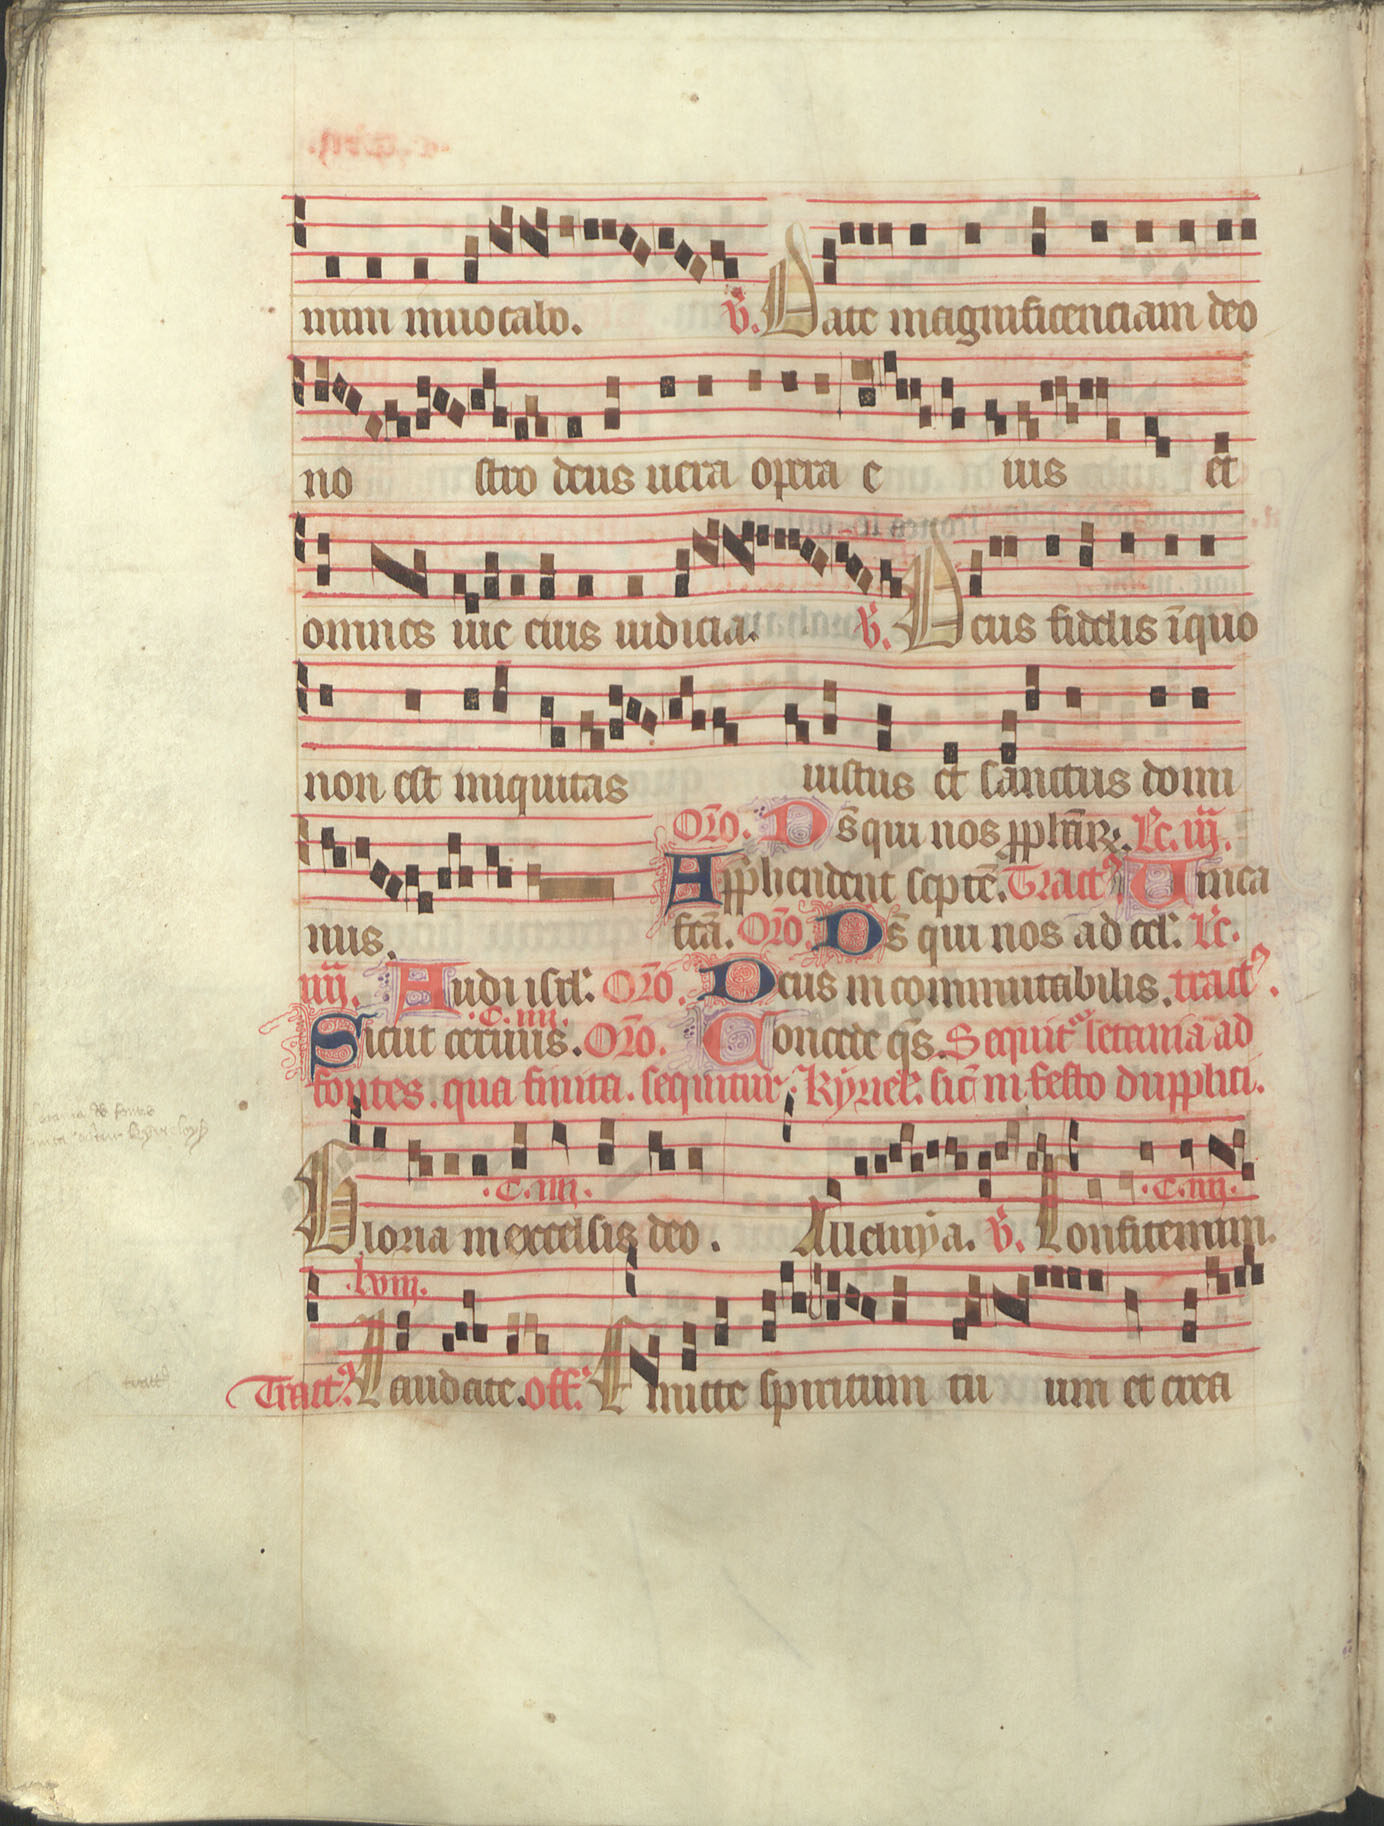 mini inuocabo. V̄. Date magnificenciam deo
no stro deus uera opera e ius et
omnes uie eius iudicia. V̄. Deus fidelis īquo
non est iniquitas iustus et sanctus domi
Or̄o. D s̄ qui nos
nus.
Appħendent septē. Tractꝰ Uinea
fc̄a. Or̄o. Ds̄ qui nos ad cel. Lc̄.
iiij. Audi isrl̄. Or̄o. Deus incommutabilis. tractꝰ.
Sicut ceruus. Or̄o. Concede qs̄. Sequit᷑ letania ad
.C. iiij.
fontes. qua finita. sequitur. Kyriel̄. sic̄ in festo dupplici.
.C. iiij. .C. iiij.
Gloria in excelsis deo. Alleluya. V̄. Confitemini.
.lviij.
Tractꝰ Laudate. off. Emitte spiritum tu um et crea